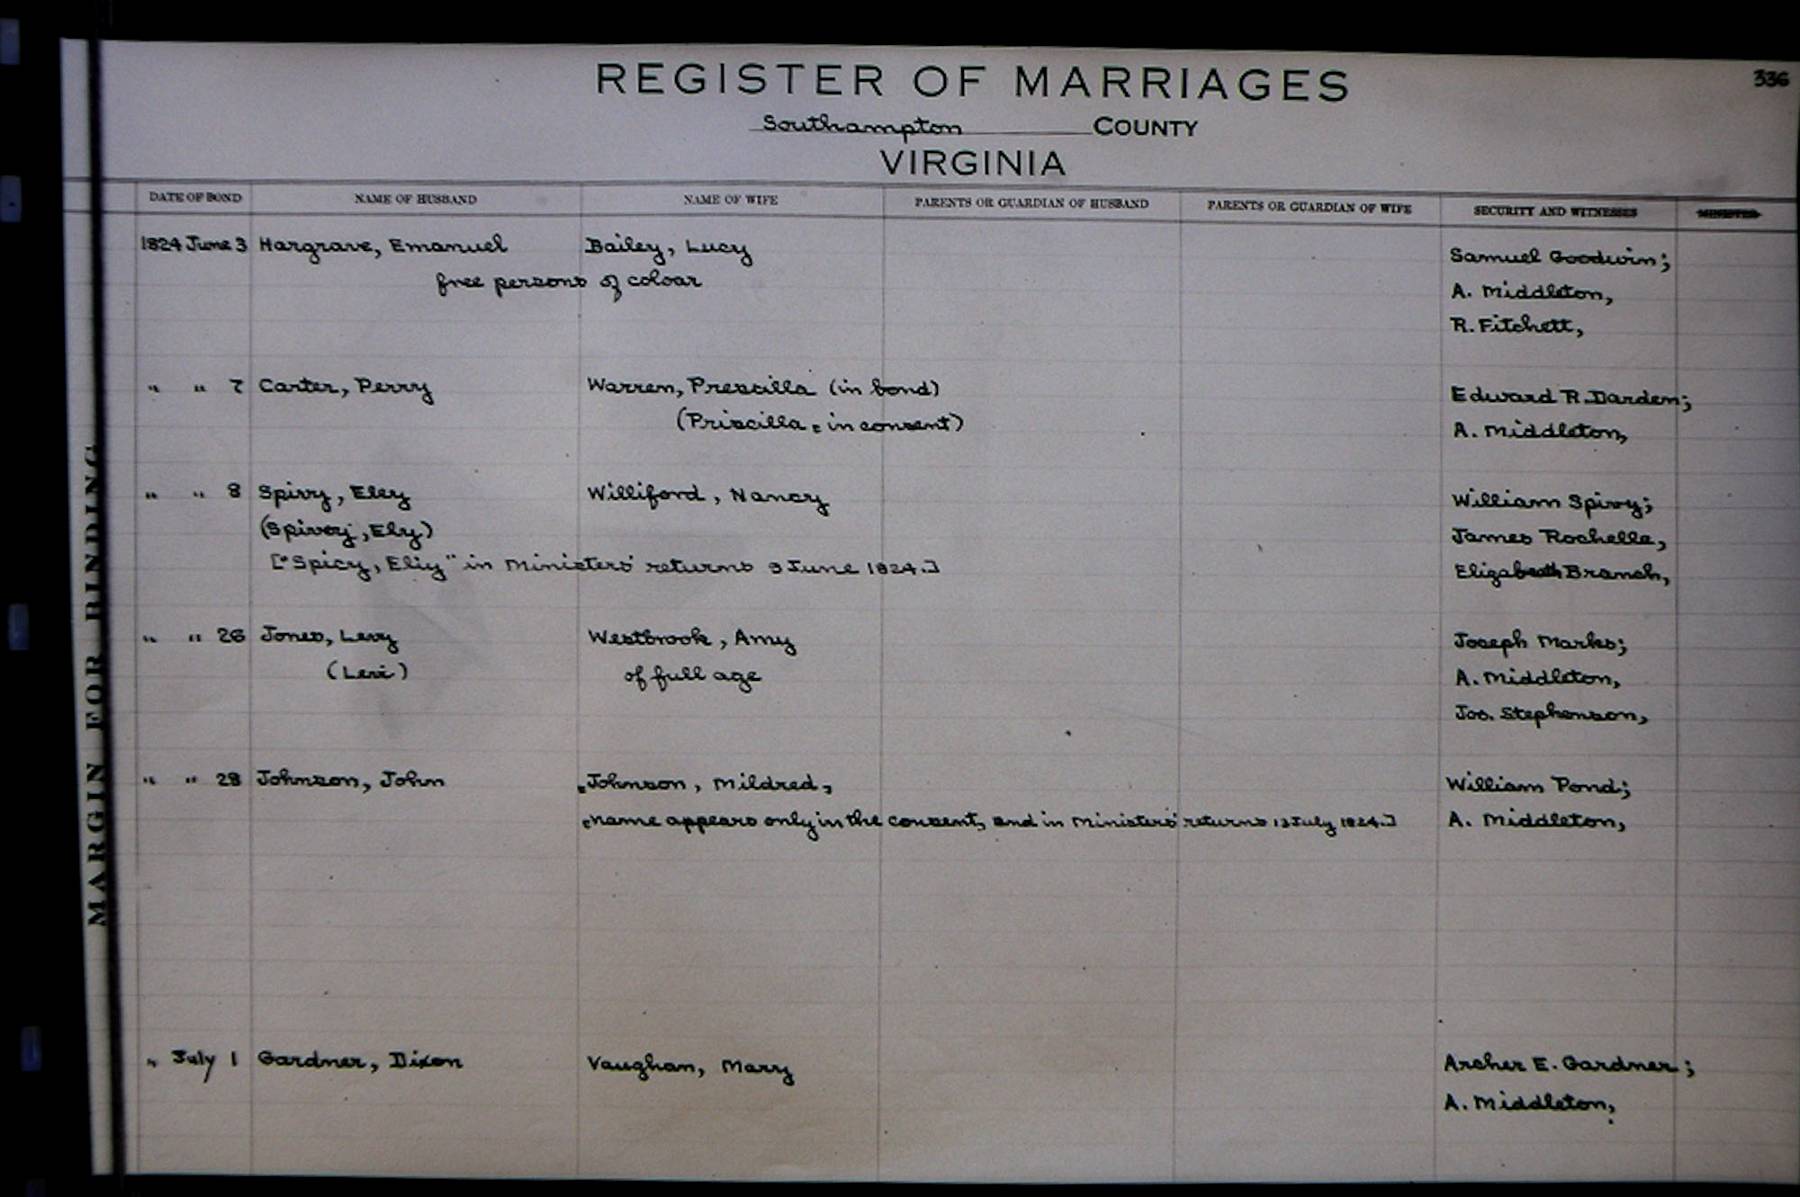 336
REGISTER OF MARRIAGES
Southampton COUNTY
VIRGINIA
DATE OF BOND NAME OF HUSBAND NAME OF WIFE PARENTS OR GUARDIAN OF HUSBAND PARENTS OR GUARDIAN OF WIFE SECURITY AND WITNESSES MINISTER
1824 June 3 Hargrave, Emanuel Bailey, Lucy Samuel Goodwin;
free persons of colour A. Middleton,
R. Fitchett,
" " 7 Carter, Perry Warren, Prescilla (in bond) Edward R. Darden;
(Priscilla, in consent) A. Middleton,
" " 8 Spivy, Eley Williford, Nancy William Spivy;
(Spivey, Ely) James Rochelle,
["Spicy, Eliy" in Ministers' returns 9 June 1824.] Elizabeath Branch,
" " 26 Jones, Levy Westbrook, Amy Joseph Marks;
(Levi) of full age A. Middleton,
Jos. Stephenson,
" " 28 Johnson, John Johnson, Mildred, William Pond;
[name appears only in the consent, and in Ministers' returns 13 July 1824.] A. Middleton,
" July 1 Gardner, Dixon Vaughan, Mary Archer E. Gardner;
A. Middleton,
MARGIN FOR BINDING